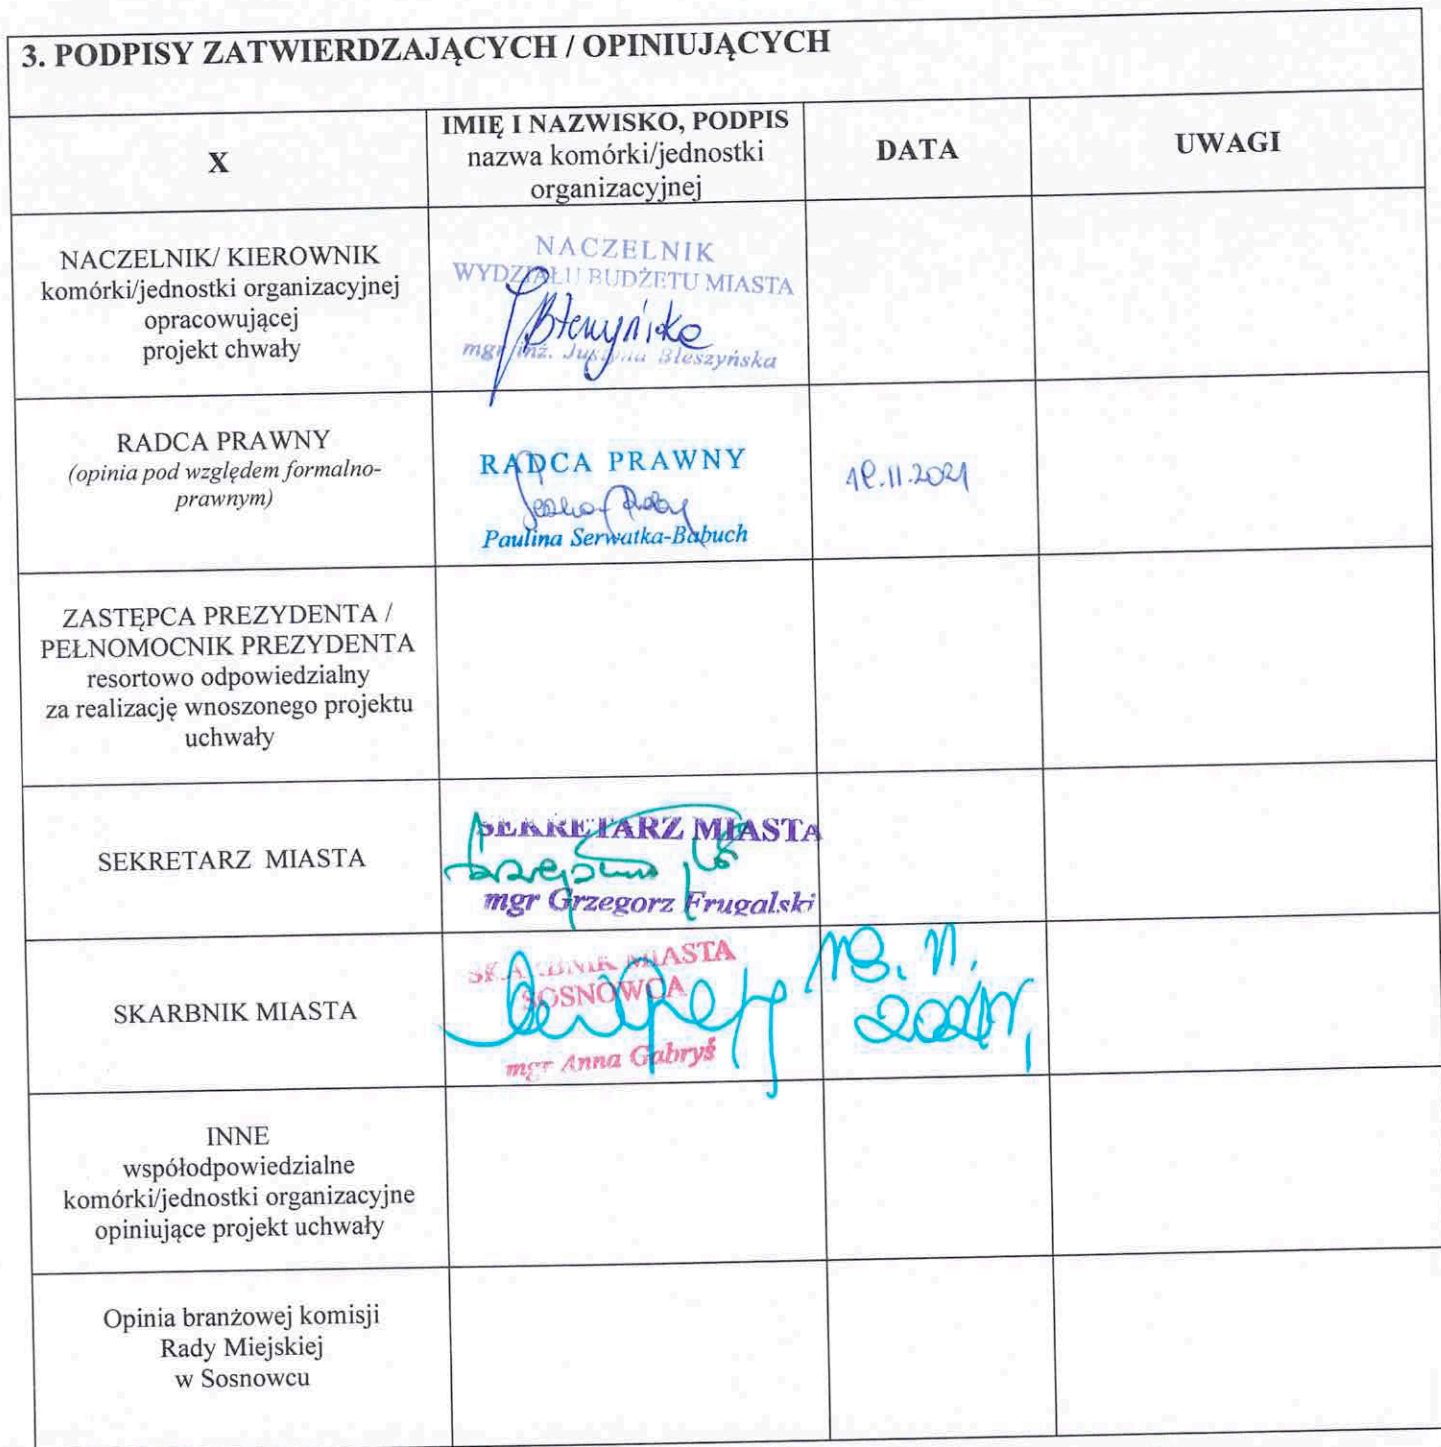 3. PODPISY ZATWIERDZAJĄCYCH / OPINIUJĄCYCH
X
IMIĘ I NAZWISKO, PODPIS
nazwa komórki/jednostki
organizacyjnej
DATA
UWAGI
NACZELNIK/ KIEROWNIK
komórki/jednostki organizacyjnej
opracowującej
projekt chwały
NACZELNIK
WYDZIAŁU BUDŻETU MIASTA
mgr inż. Justyna Błeszyńska
RADCA PRAWNY
(opinia pod względem formalno-
prawnym)
RADCA PRAWNY
Paulina Serwatka-Babuch
ZASTĘPCA PREZYDENTA /
PEŁNOMOCNIK PREZYDENTA
resortowo odpowiedzialny
za realizację wnoszonego projektu
uchwały
SEKRETARZ MIASTA
SEKRETARZ MIASTA
mgr Grzegorz Frugalski
SKARBNIK MIASTA
SKARBNIK MIASTA
SOSNOWCA
mgr Anna Gabryś
INNE
współodpowiedzialne
komórki/jednostki organizacyjne
opiniujące projekt uchwały
Opinia branżowej komisji
Rady Miejskiej
w Sosnowcu